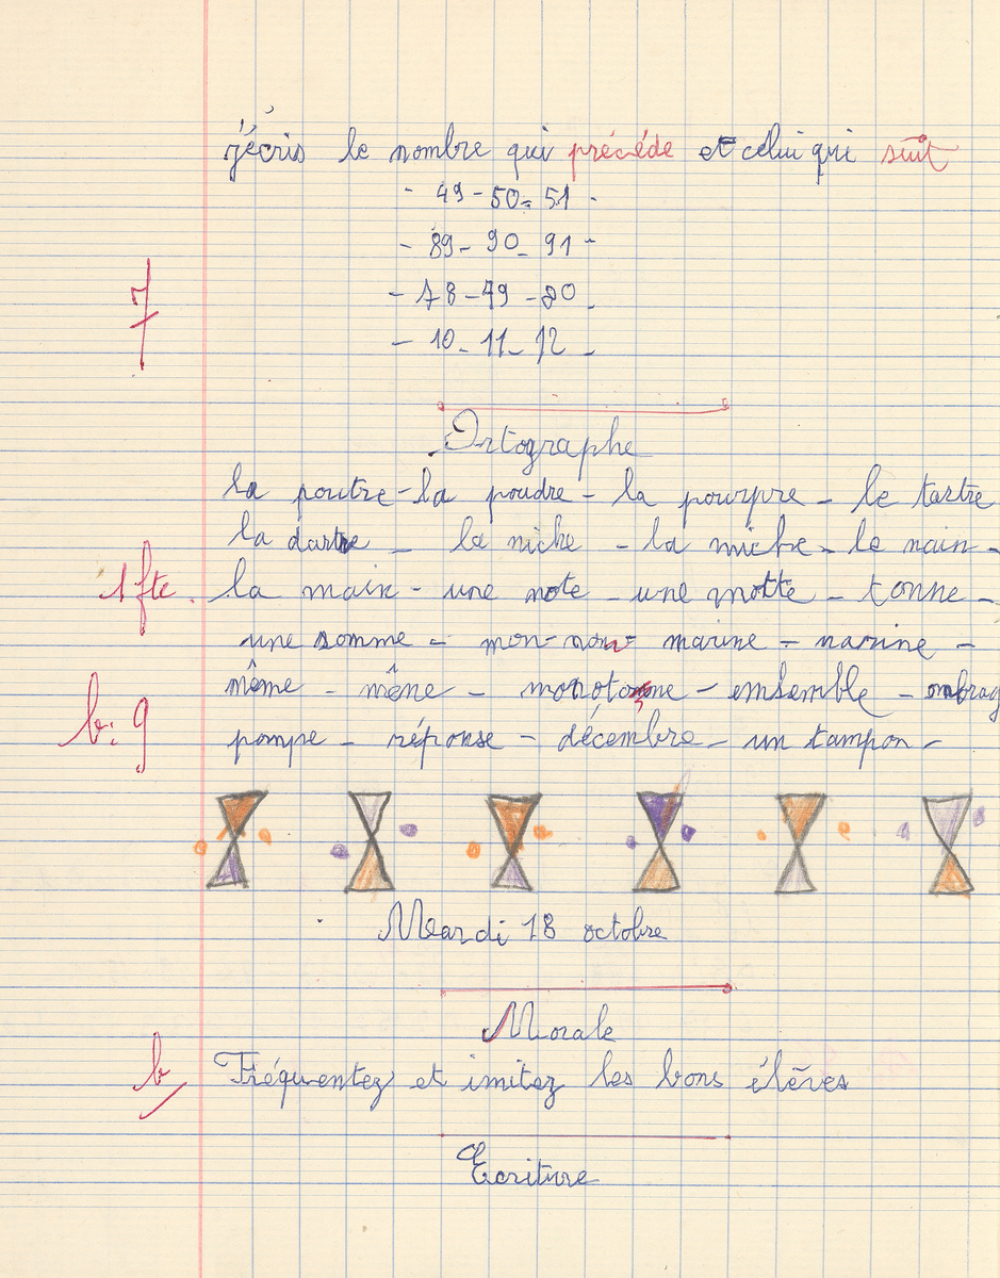 j'écris le nombre qui précéde et celui qui suit
- 49 - 50 - 51 -
- 89 - 90 - 91 -
7
- 78 - 79 - 80 -
- 10 - 11 - 12 -
Ortographe
la poutre - la poudre - la pourpre - le tartre
la dartre - la niche - la miche - le nain -
1 fte. la main - une note - une motte - tonne -
une somme - mon - non - marine - narine -
b : 9 même - mène - monotone - ensemble - ombrag
pompe - réponse - décembre - un tampon -
Mardi 18 octobre
Morale
b Fréquentez et imitez les bons élèves
Ecriture